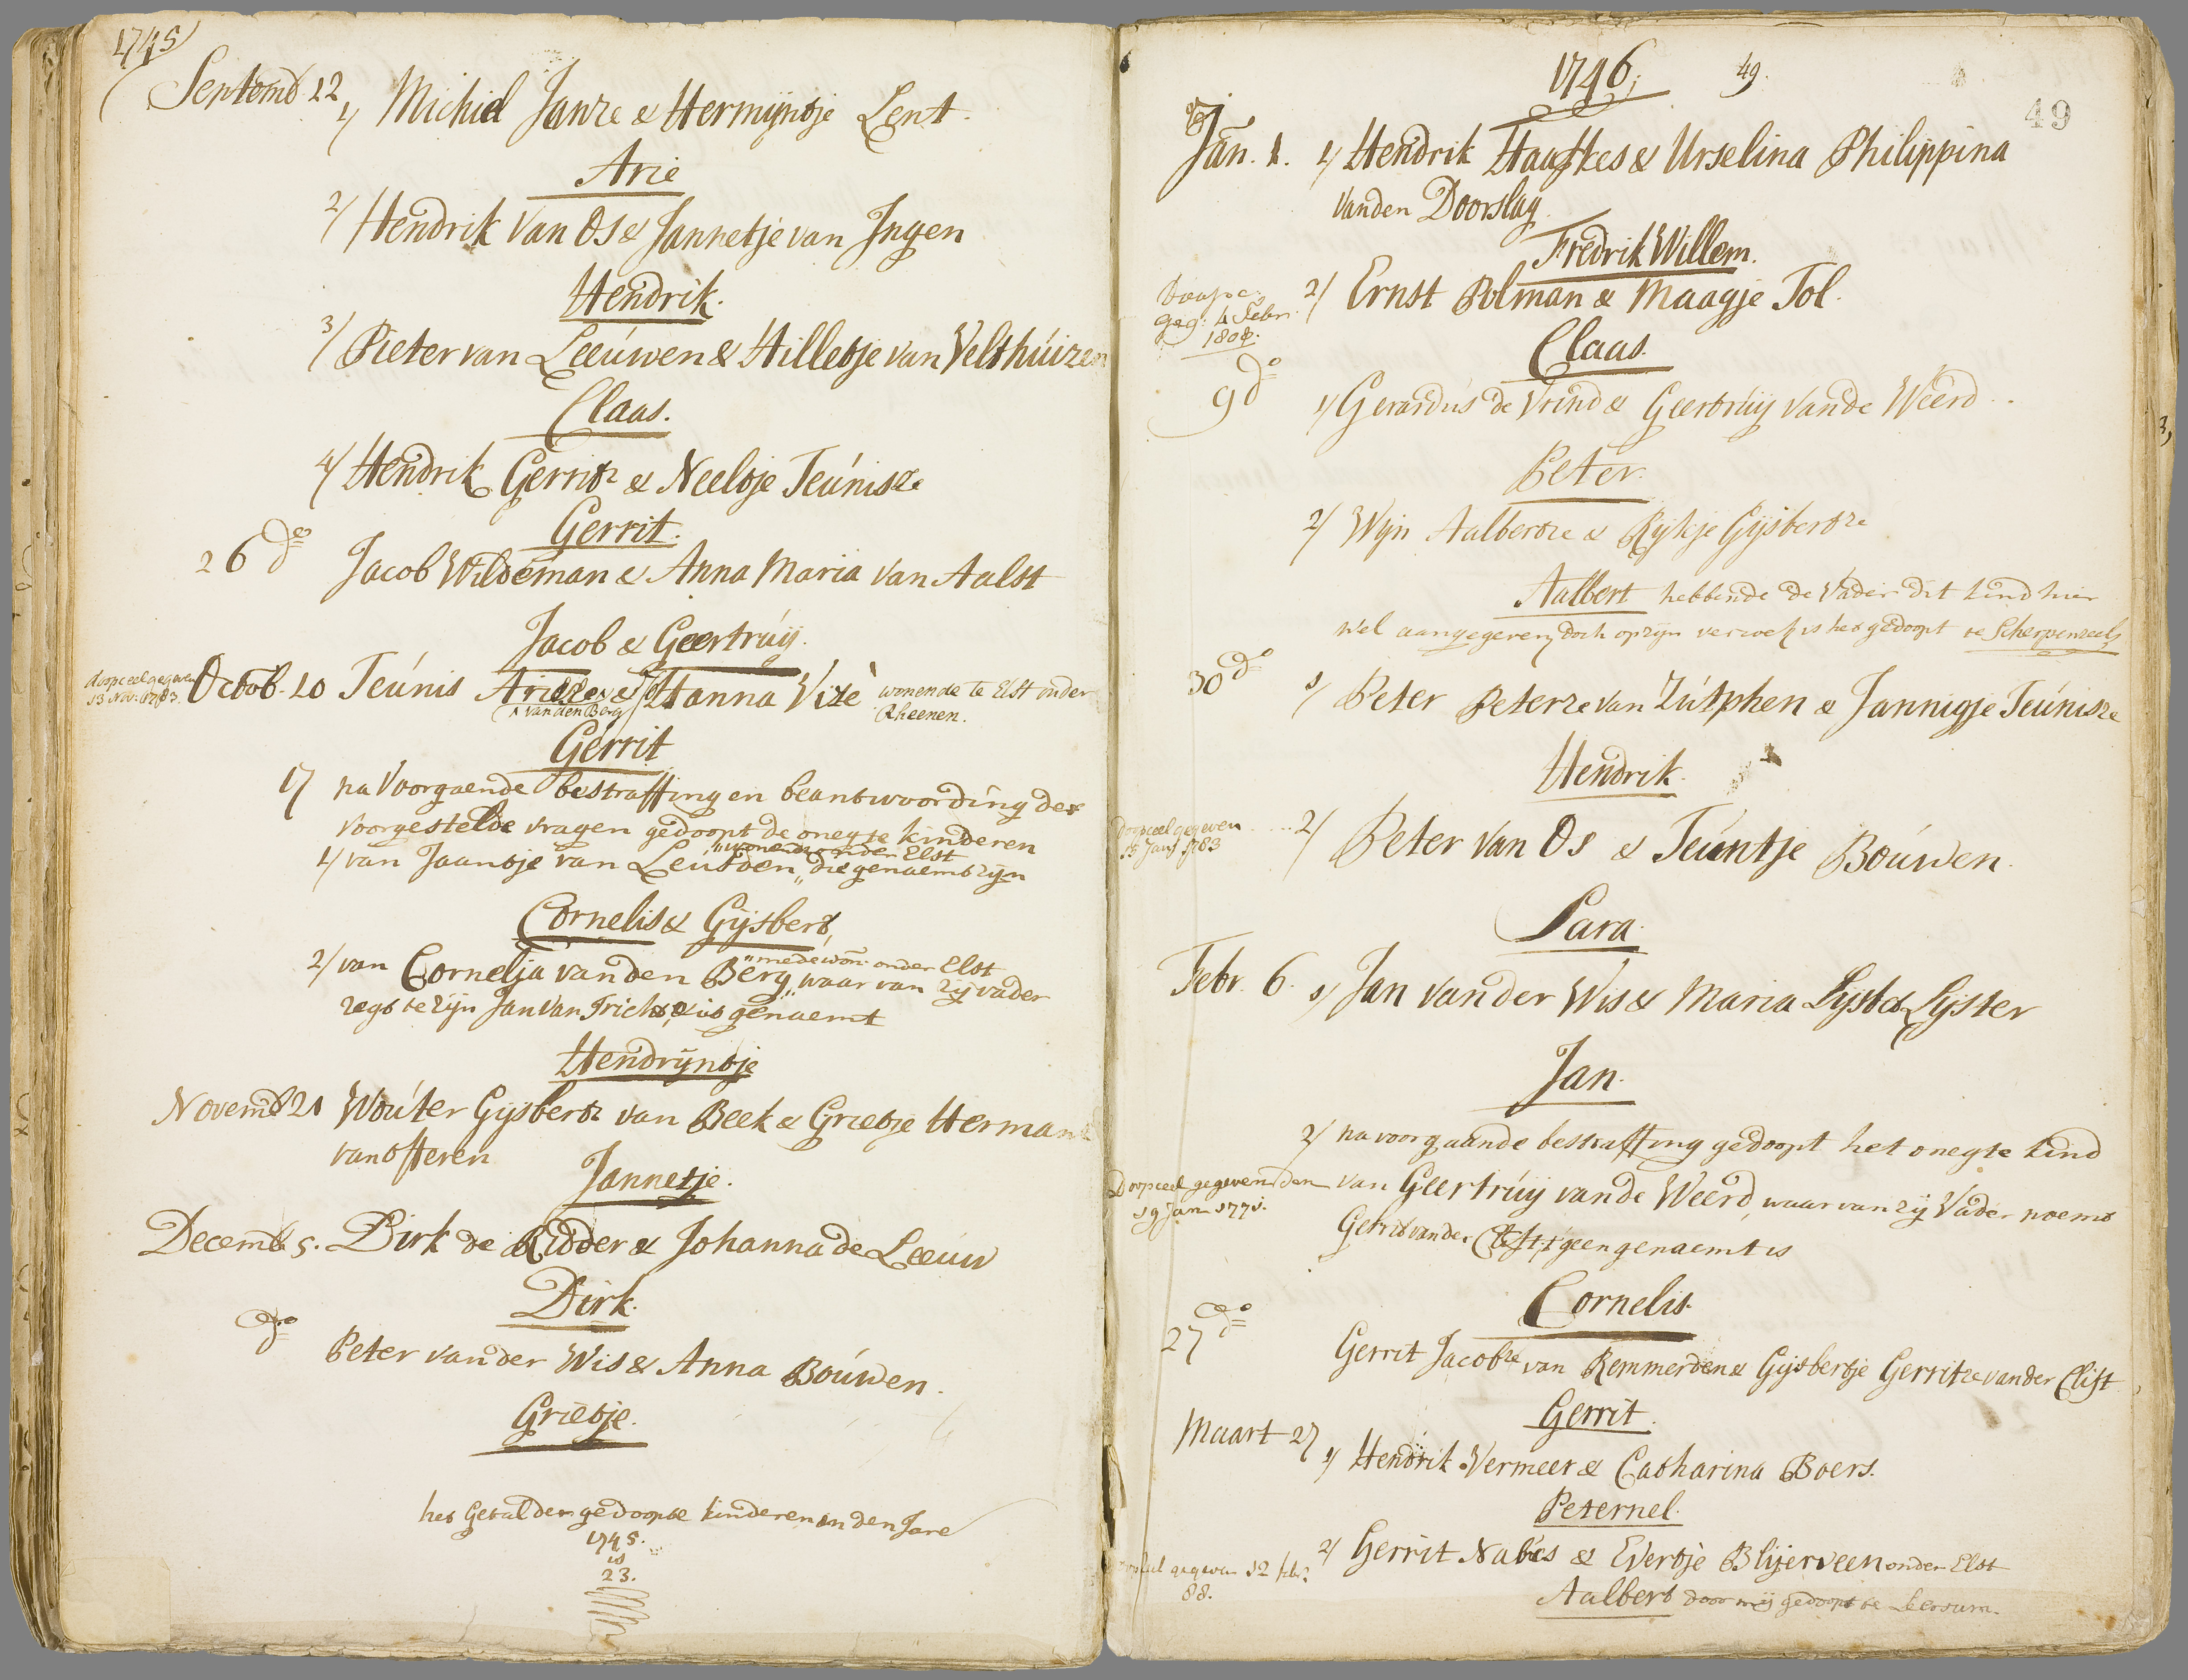 1745
Septemb 12 1/ Michiel Janze & Hermijntje Lent.
Arie
2/ Hendrik Van Os & Jannetje van Ingen
Hendrik.
3/ Pieter van Leeúwen & Hilletje van Velthúizen
Claas.
4/ Hendrik Gerritz & Neeltje Teúnisze
Gerrit.
26 do Jacob Wildeman & Anna Maria van Aalst
Jacob & Geertrúij.
doopceel gegeven
13 Nov: 1783. Octob. 10 Teúnis Arieze & Hanna Vizè wonende te Elst onder
van den Berg Rheenen.
Gerrit
17 na Voorgaende bestraffing en beantwoording der
voorgestelde vragen gedoopt de onegte kinderen
wonende onder Elst
1/ van Jaantje van Leusden, die genaemt zijn
Cornelis & Gijsbert,
mede won: onder Elst
2/ van Cornelia van den Berg, waar van zij vader
zegt te zijn Jan Van Tricht, & is genaemt
Hendrijntje
Novemb 21 Woúter Gijsbertz van Beek & Grietje Hermans
van Offeren
Jannetje.
Decemb 5. Dirk de Ridder & Johanna de Leeúw
Dirk.
do Peter van der Wis & Anna Boúwen.
Grietje.
het Getal der gedoopte kinderen in den Jare
1745.
is
23.
1746; 49.
49
Jan. 1. 1/ Hendrik Haaskes & Urselina Philippina
vanden Doorslag.
Fredrik Willem.
2/ Ernst Polman & Maagje Tol.
geg: 4 Febr:
1808.
Claas.
9 do 1/ Gerardús de Vrind & Geertrúij vande Weerd..
Peter.
2/ Wijn Aalbertze & Rijkje Gijsbertze
Aalbert hebbende de Vader dit kind hier
wel aangegeven, doch op zijn verzoek is het gedoopt te Scherpenzeel,
30 do 1/ Peter Peterze van Zútphen & Jannigje Teúnisze
Hendrik.
doopceel gegeven
15 Janr 1783 2/ Peter Van Os & Teúntje Boúwen.
Sara.
Febr. 6. 1/ Jan van der Wis & Maria Lijster
Jan.
2/ na voorgaande bestraffing gedoopt het onegte kind
Doopceel gegeven den van Geertrúij vande Weerd, waar van zij Vader noemt
19 Jann 1771. Gerrit van der Clift, 't geen genaemt is
Cornelis.
27 do Gerrit Jacobze van Remmerden & Gijsbertje Gerritze van der Clift
Gerrit.
Maart 27 1/ Hendrik Vermeer & Catharina Boers.
Peternel.
gegeven 12 febr
88. 2/ Gerrit Nabes & Evertje Blijerveen onder Elst
Aalbert door mij gedoopt te Leersum.